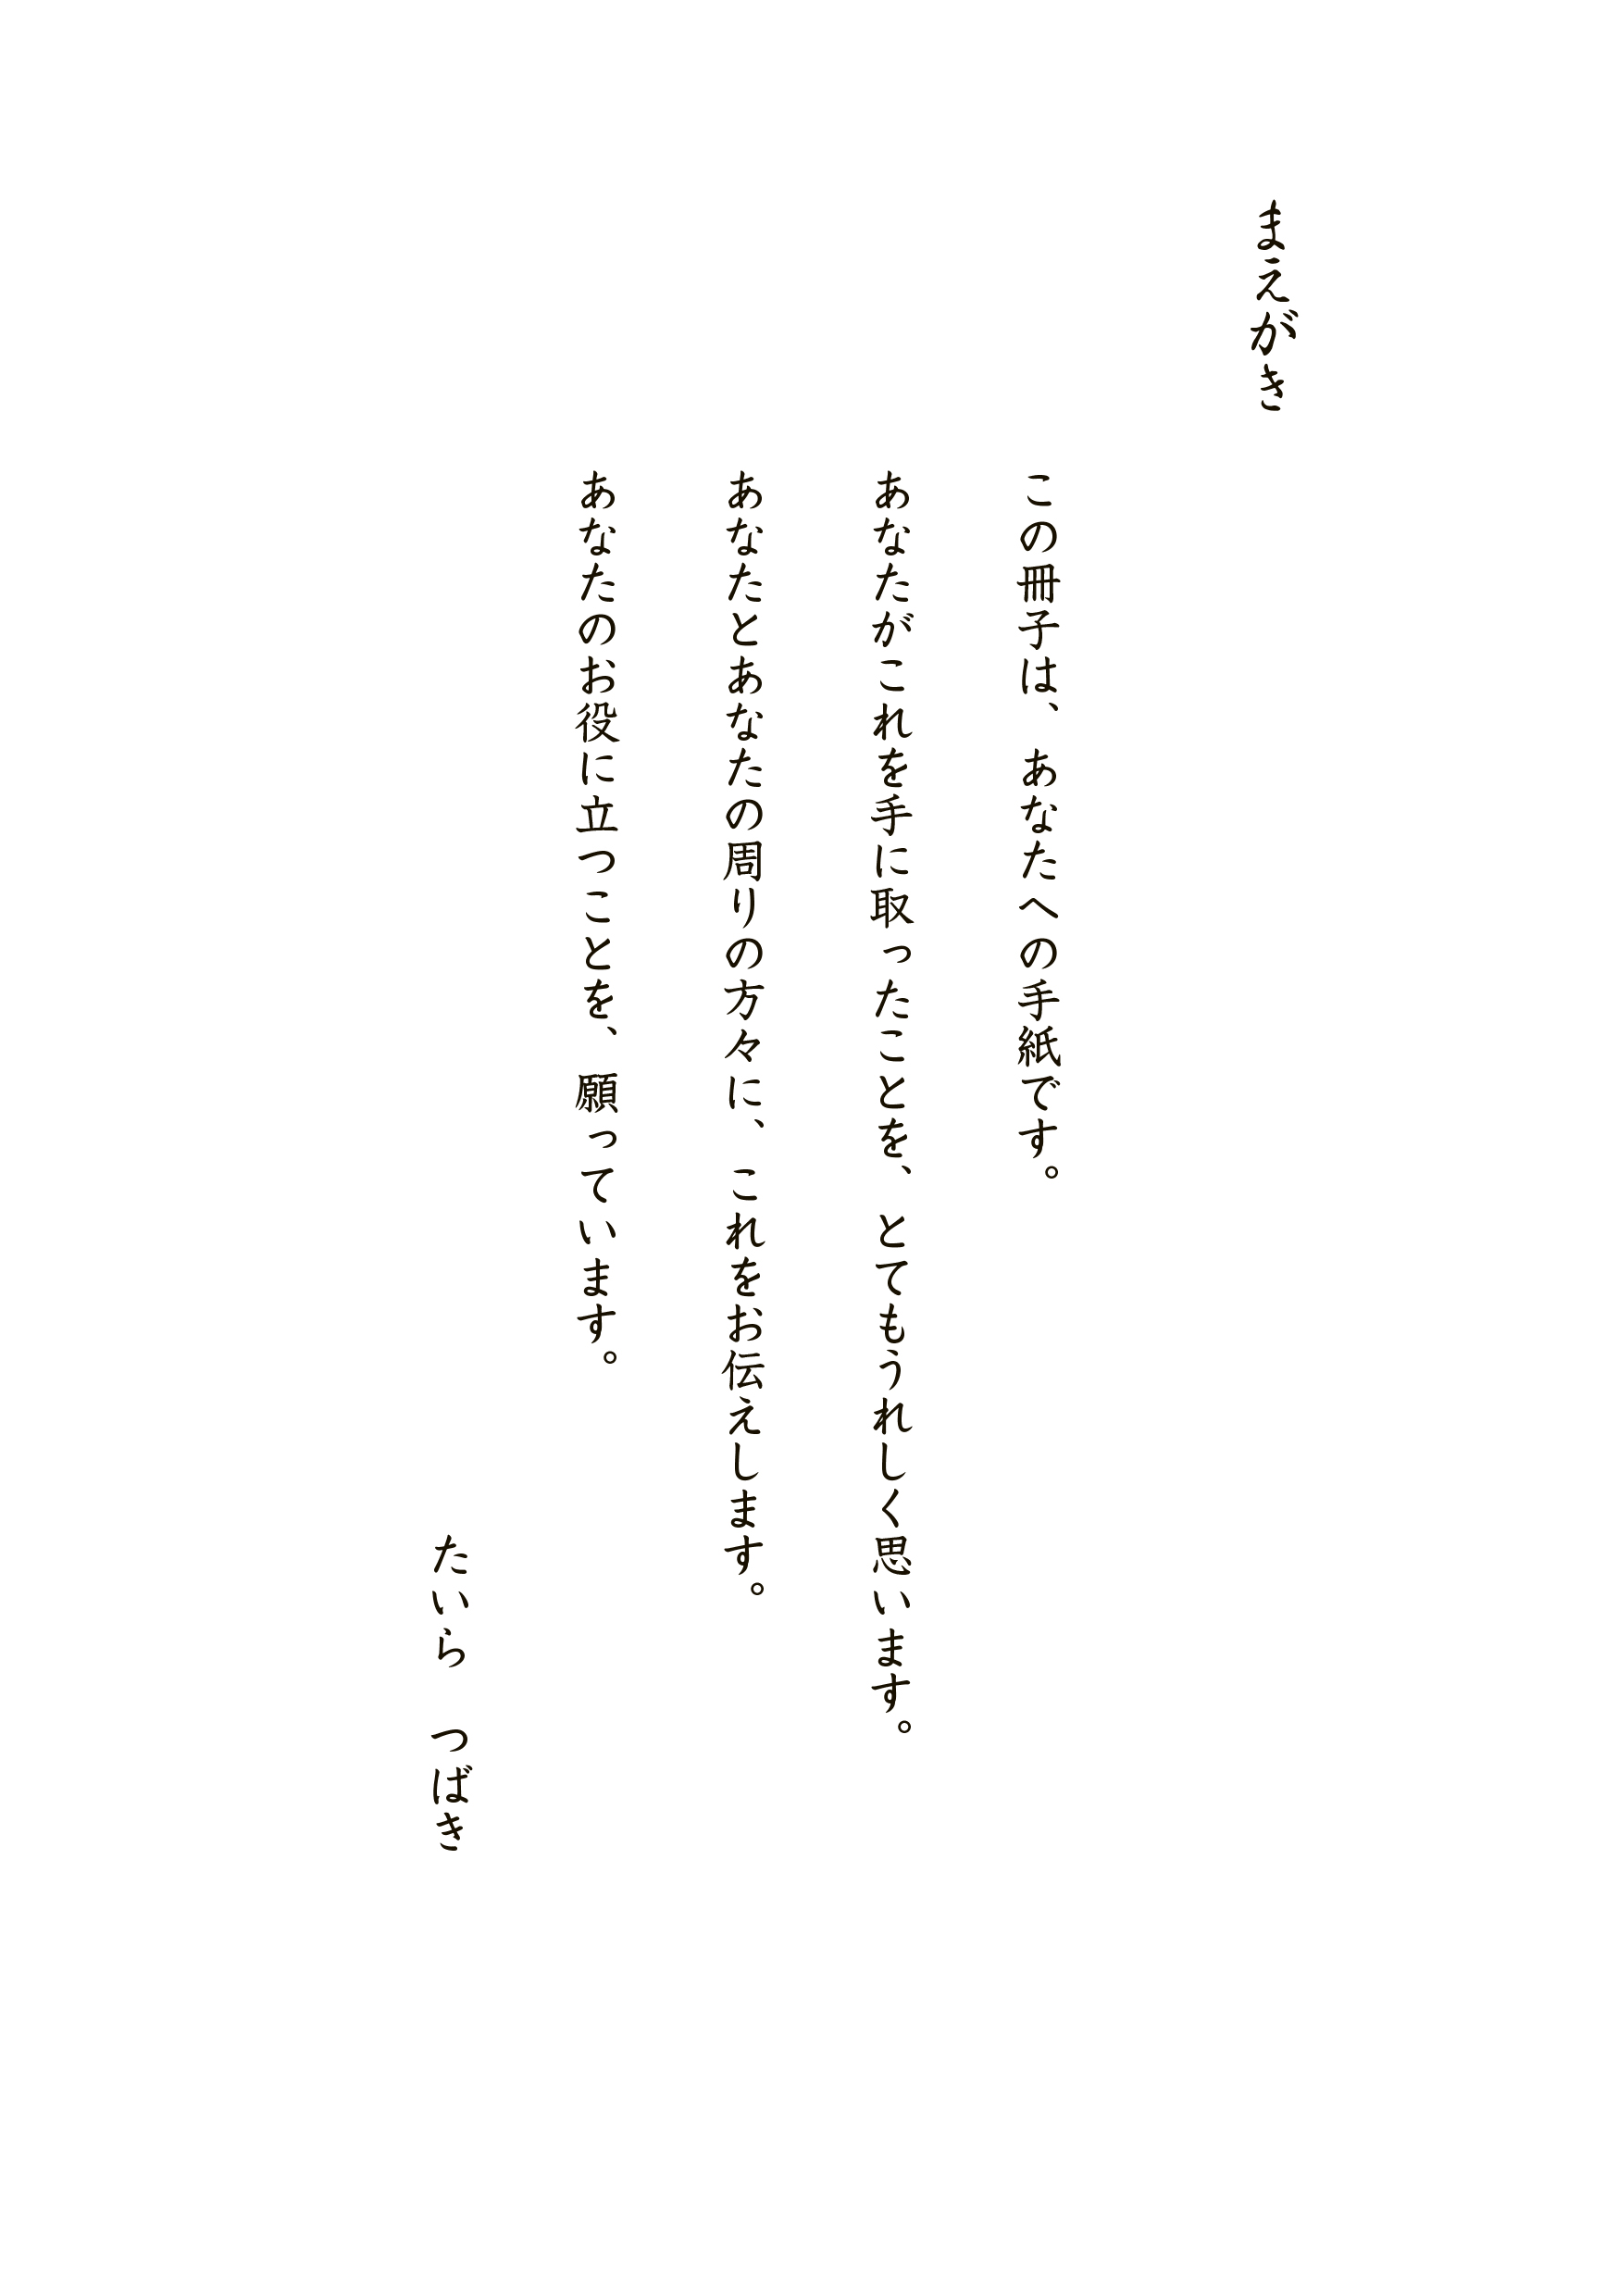 まえがき
この冊子は、あなたへの手紙です。
あなたがこれを手に取ったことを、とてもうれしく思います。
あなたとあなたの周りの方々に、これをお伝えします。
あなたのお役に立つことを、願っています。
たいら　つばき